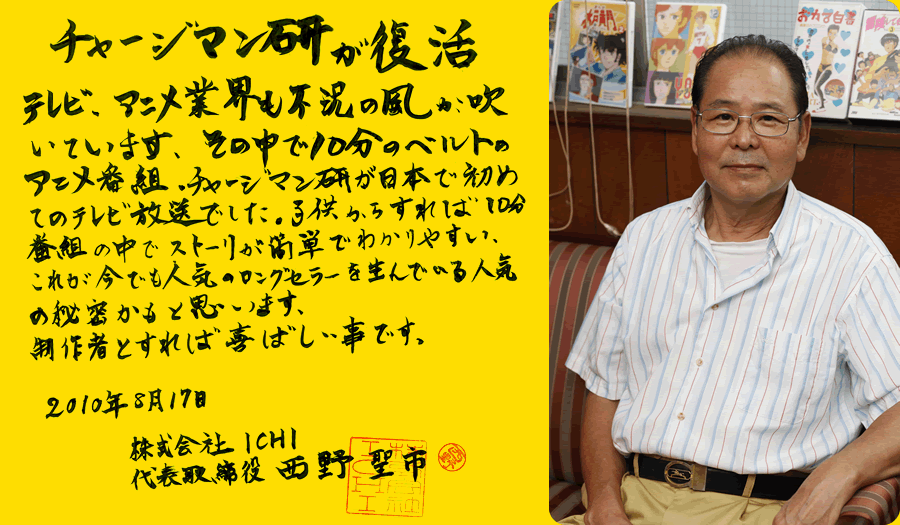 チャージマン研が復活
テレビ、アニメ業界も不況の風が吹
いています、その中で10分のベルトの
アニメ番組、チャージマン研が日本で初め
てのテレビ放送でした。子供からすれば10分
番組の中でストーリが簡単でわかりやすい、
これが今でも人気のロングセラーを生んでいる人気
の秘密かもと思います、
制作者とすれば喜ばしい事です。
2010年8月17日
株式会社 ICHI
代表取締役 西野聖市